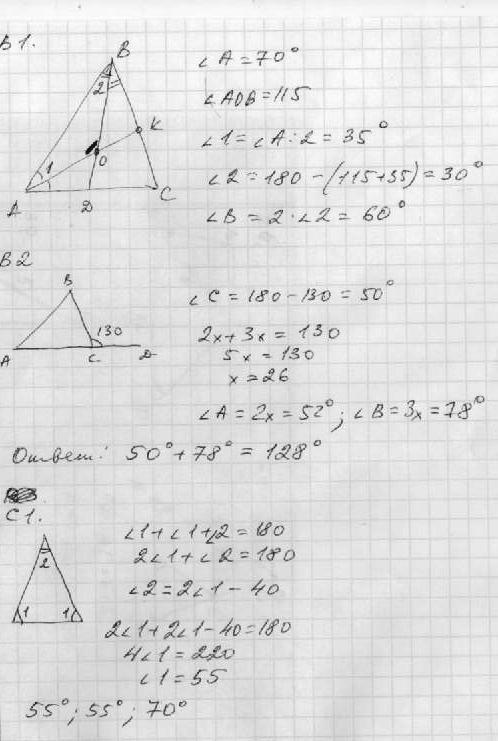 B1.
B
2
K
1
O
A
D
C
∠A = 70°
∠AOB = 115
∠1 = ∠A : 2 = 35°
∠2 = 180 - (115+35) = 30°
∠B = 2·∠2 = 60°
B2
B
130
A
C
D
∠C = 180 - 130 = 50°
2x + 3x = 130
5x = 130
x = 26
∠A = 2x = 52°; ∠B = 3x = 78°
Ответ: 50° + 78° = 128°
C1.
2
1
1
∠1 + ∠1 + ∠2 = 180
2∠1 + ∠2 = 180
∠2 = 2∠1 - 40
2∠1 + 2∠1 - 40 = 180
4∠1 = 220
∠1 = 55
55°; 55°; 70°